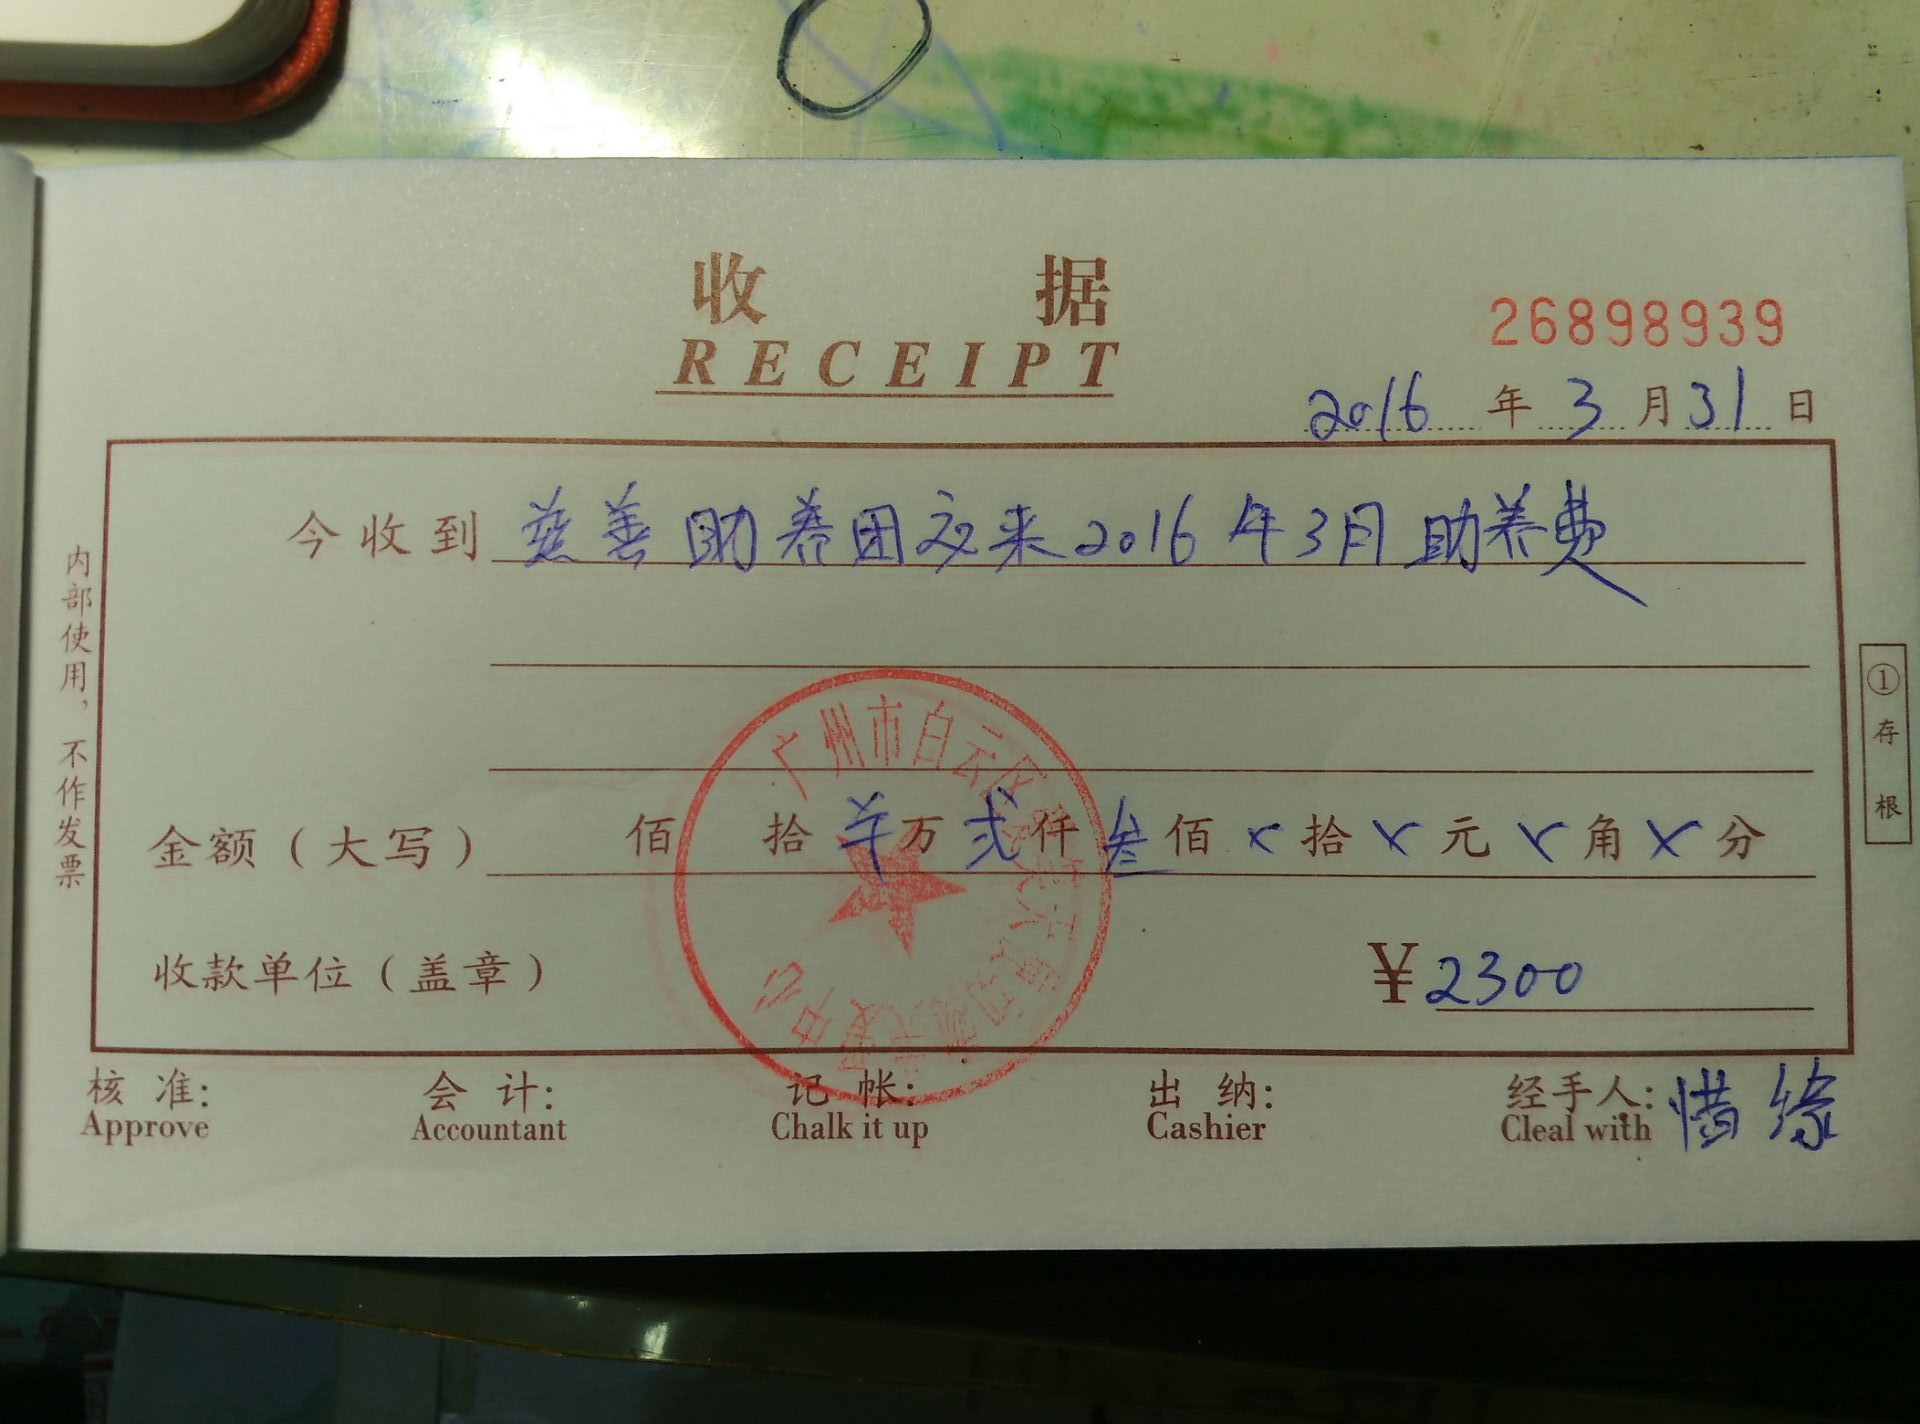 收 据
RECEIPT
26898939
2016 年 3 月 31 日
今收到 慈善助养团交来2016年3月助养费
金额（大写） 佰 拾 万 贰 仟 叁 佰 × 拾 × 元 × 角 × 分
收款单位（盖章） ¥2300
核 准: 会 计: 记 帐: 出 纳: 经手人: 惜缘
Approve Accountant Chalk it up Cashier Cleal with
内部使用，不作发票
①存根
广州市白云区 中心